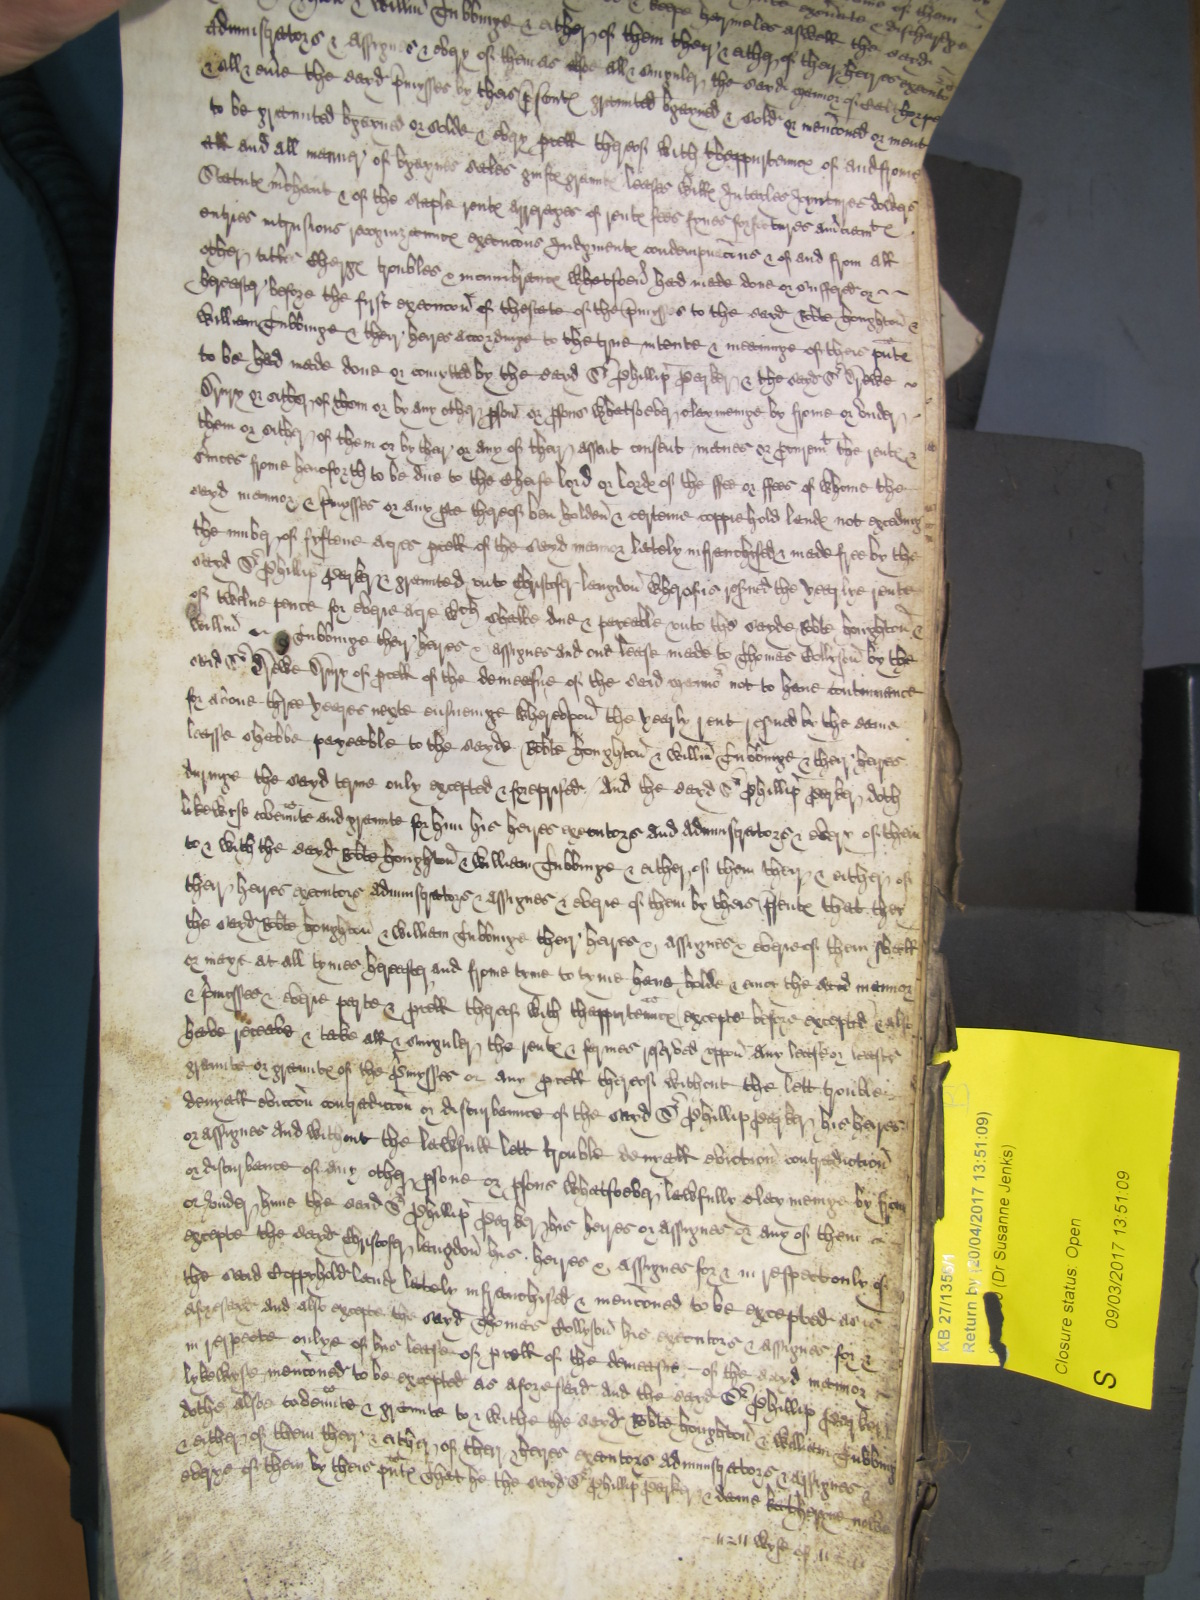 & Willm̄ Cubbinge & either of them their & either of their heires executo
Administrators & Assignes & every of them as all & singuler the sayd mannor
& all & eūie the sayd p̄mysses by theis p̄sentꝭ graunted bgayned & sold or menc̄oned or ment
to be graunted bgayned or solde & every pcell thereof with thappurtenncꝭ of and frome
all and all manner of bgaynes sales giftꝭ grauntꝭ leases willꝭ Intailes Joyntures dowers
Statutꝭ m̄chaunt & of the staple rentꝭ arrerages of rentꝭ fees fynes forfetures am̄ciamtꝭ
entries intrusions recognizanncꝭ execuc̄ons Judgmentꝭ condempnac̄ons & of and from all
other titles chargꝭ troubles & incumbrancꝭ whatsoeū had made done or suffered or
hereafter before the first execuc̄on of thestate of the p̄mysses to the sayd Robte houghton &
William Cubbinge & their heires accordinge to the true intente & meaninge of theis p̄nte
to be had made done or comytted by the sayd Sr Phillip Parker & the sayd Sr Drewe
Drury or either of them or by any other pson or psons whatsoever claymeinge by frome or under
them or either of them or by their or any of their assent consent meanes or procuremt the rentꝭ &
sūices frome henceforth to be due to the cheife lord or lordꝭ of the ffee or ffees of whome the
sayd mannor & p̄mysses or any pte thereof ben holden & certeine coppiehold landꝭ not exceding
the nūber of fyftene acres pcell of the sayd mannor lately infranchised & made free by the
sayd Sr Phillip Parker & graunted unto Christofer langdon wherof is resūed the yearlye rente
of twelue pence for everie acre wch shalbe due & payeable unto the sayde Robte houghton &
Willm̄ Cubbinge their heires & assignes and one lease made to Thomas Collyson by the
said Sr Drewe Drury of pcell of the demeasne of the said mannor not to haue contynuance
for aboue three yeares nexte ensueinge whereupon the yearly rent resūed by the same
leasse shalbe payeable to the sayde Robte houghton & Willm̄ Cubbinge & their heires
duringe the sayd terme only excepted & foreprised And the sayd Sr Phillip Parker doth
likewyse covēnte and graunte for him his heires executors and Administrators & every of them
to & with the sayd Robte houghton & William Cubbinge & either of them their & either of
their heires executors Administrators & assignes & everie of them by theis p̄sentꝭ that they
the sayd Robte houghton & William Cubbinge their heires & assignes & everie of them shall
or maye at all tymes hereafter and frome tyme to tyme haue holde & enioy the said mannor
& p̄misses & everie parte & pcell thereof with thappurtenncꝭ excepte before excepted & also
have receave & take all & singuler the rentꝭ & fermes reserved uppon any lease or leases
graunte or grauntꝭ of the p̄mysses or any pcell thereof without the lett trouble
denyall evicc̄on contradicc̄on or disturbannce of the sayd Sr Phillip Parker his heires
or assignes And without the lawfull lett trouble denyall eviction contradiction
or disturbance of any other psone or psons whatsoever lawfully claymeinge by from
or under hime the said Sr Phillip Parker his heires or assignes or any of them
excepte the sayd Christofer langdon his heires & assignes for & in respect only of
the said Coppyhold landꝭ lately infranchised & menc̄oned to be excepted as is
aforesayd and also excepte the sayd Thomas Collyson his executors & assignes for &
in respecte onlye of his lease of pcell of the demeasne of the sayd mannor
lykewyse menc̄oned to be excepted as aforesayd and the sayd Sr Phillip Parker
dothe also covēnte & graunte to & withe the sayd Robte houghton & William Cubbing
& either of them their & either of their heires executors Administrators & assignes &
everye of them by theis p̄ntꝭ That he the sayd Sr Phillip Parker & dame Katheryne nowe
wyfe of
KB 27/1355/1
Return by (20/04/2017 13:51:09)
(Dr Susanne Jenks)
Closure status: Open
S 09/03/2017 13:51:09